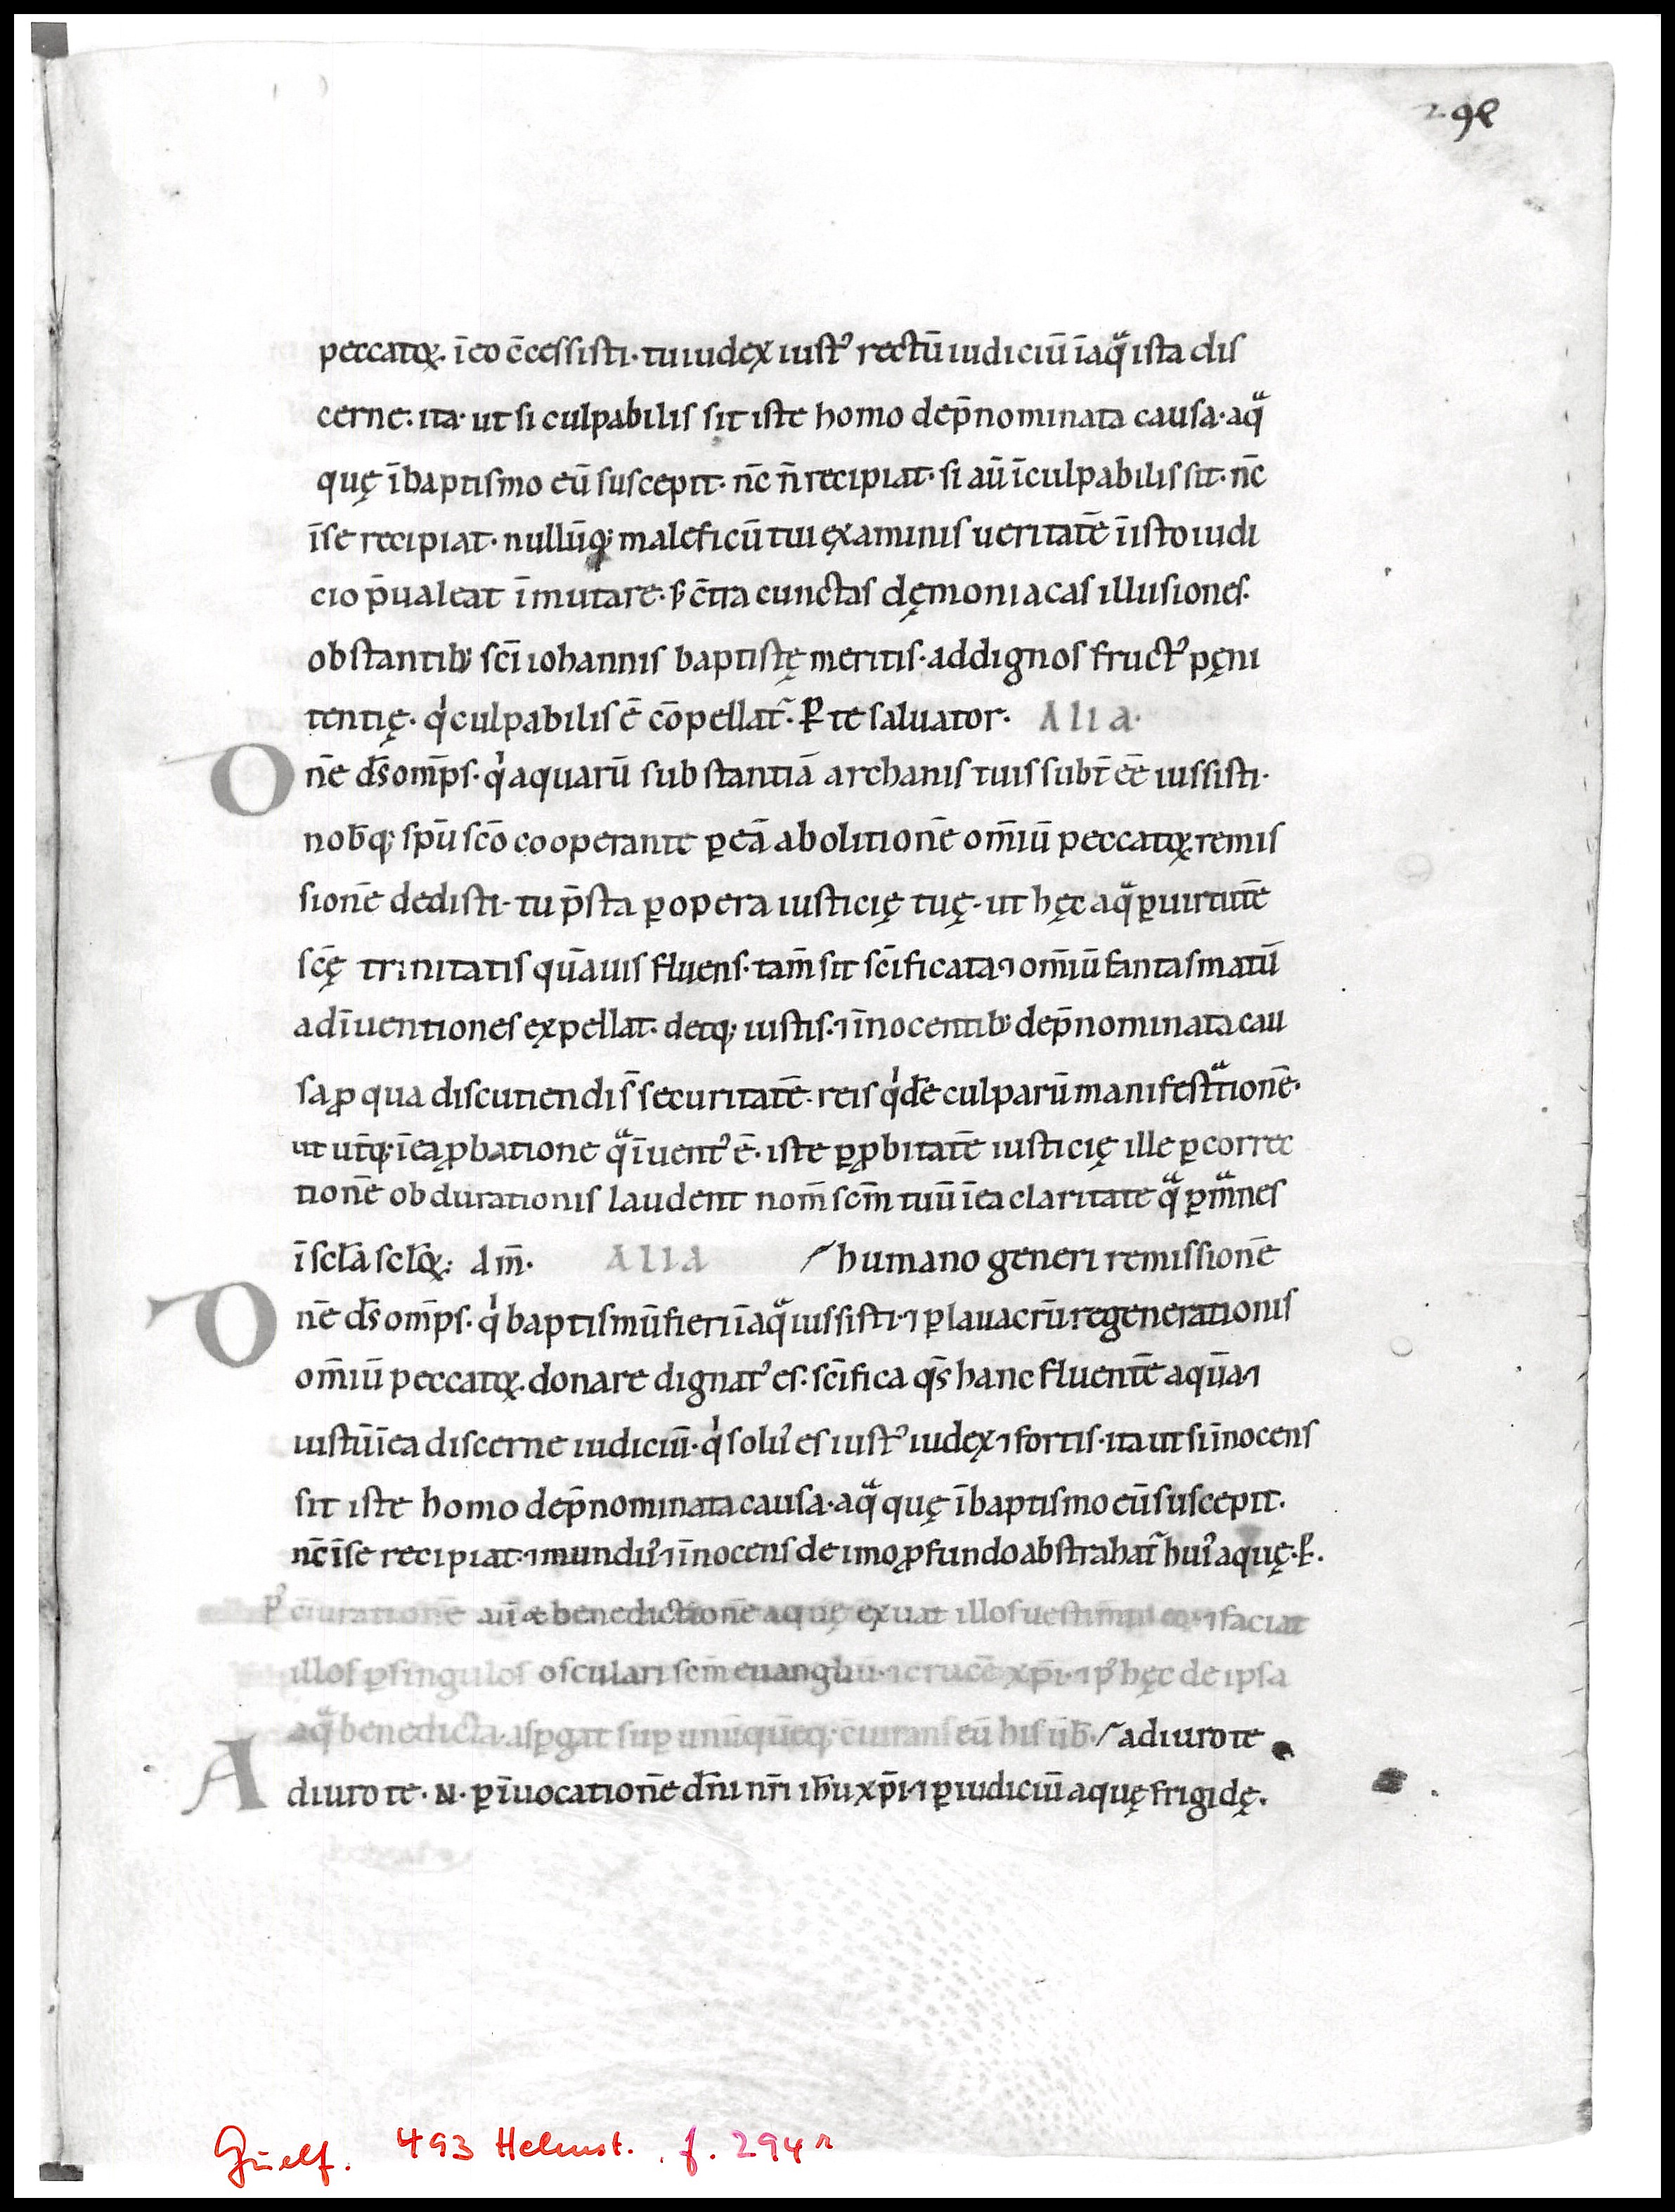 294
peccatoꝝ. ī eo c̄cessisti. tu iudex iustꝰ rectū iudiciū ī aqͣ ista dis
cerne. ita. ut si culpabilis sit iste homo de p̄nominata causa. aqͣ
quę ī baptismo eū suscepit. nc̄ n̄ recipiat. si aū īculpabilis sit. nc̄
ī se recipiat. nullūq; maleficū tui examinis ueritatē ī isto iudi
cio p̄ualeat īmutare. s; c̄tra cunctas dęmoniacas illusiones.
obstantib; sc̄i iohannis baptistę meritis. ad dignos fructꝰ pęni
tentię. qͥ culpabilis ē cōpellat᷑. ꝑ te saluator. Alia.
Om̄e ds̄ om̄ps. qͥ aquarū substantiā archanis tuis subt̄ ēē iussisti.
nob̄q; sp̄u sc̄o cooperante ꝑ eā abolitionē om̄iū peccatoꝝ remis
sionē dedisti. tu p̄sta ꝑ opera iusticię tuę. ut hęc aqͣ ꝑ uirtutē
sc̄ę trinitatis quāuis fluens. tam̄ sit sc̄ificata ⁊ om̄iū fantasmatū
adīuentiones expellat. detq; iustis. ⁊ īnocentib; de p̄nominata cau
sa ꝓ qua discutiendis̄ securitatē. reis qͥdē culparū manifestͣtionē.
ut ut̄q; ī ea ꝓbatione qͣ īuentꝰ ē. iste ꝑ ꝓbitatē iusticię ille ꝑ correc
tionē obdurationis laudent nom̄ sc̄m tuū ī ea claritate qͣ ꝑmͣnes
ī scl̄a scl̄oꝝ. Am̄. Alia / humano generi remissionē
One ds̄ om̄ps. qͥ baptismū fieri ī aqͣ iussisti. ⁊ ꝑ lauacrū regenerationis
om̄iū peccatoꝝ. donare dignatꝰ es. sc̄ifica qs̄ hanc fluentē aquā ⁊
iustū ī ea discerne iudiciū. qͥ solꝰ es iustꝰ iudex ⁊ fortis. ita ut si īnocens
sit iste homo de p̄nominata causa. aqͣ quę ī baptismo eū suscepit.
nc̄ ī se recipiat. ⁊ mundꝰ ⁊ īnocens de imo ꝓfundo abstrahat᷑ huiꝰ aquę.
pꝰ c̄iurationē aū & benedictionē aquę exuat illos uestim̄tis eoꝝ ⁊ faciat
illos ꝑ singulos osculari sc̄m euangliū. ⁊ crucē xp̄i. ⁊ pꝰ hęc de ipsa
aqͣ benedicta. asꝑgat suꝑ unūquēq; c̄iurans eū his ūb̄. / adiuro te
Adiuro te. N. ꝑ īuocationē dn̄i nr̄i ih̄u xp̄i. ⁊ ꝑ iudiciū aquę frigidę.
Guelf. 493 Helmst. f. 294r